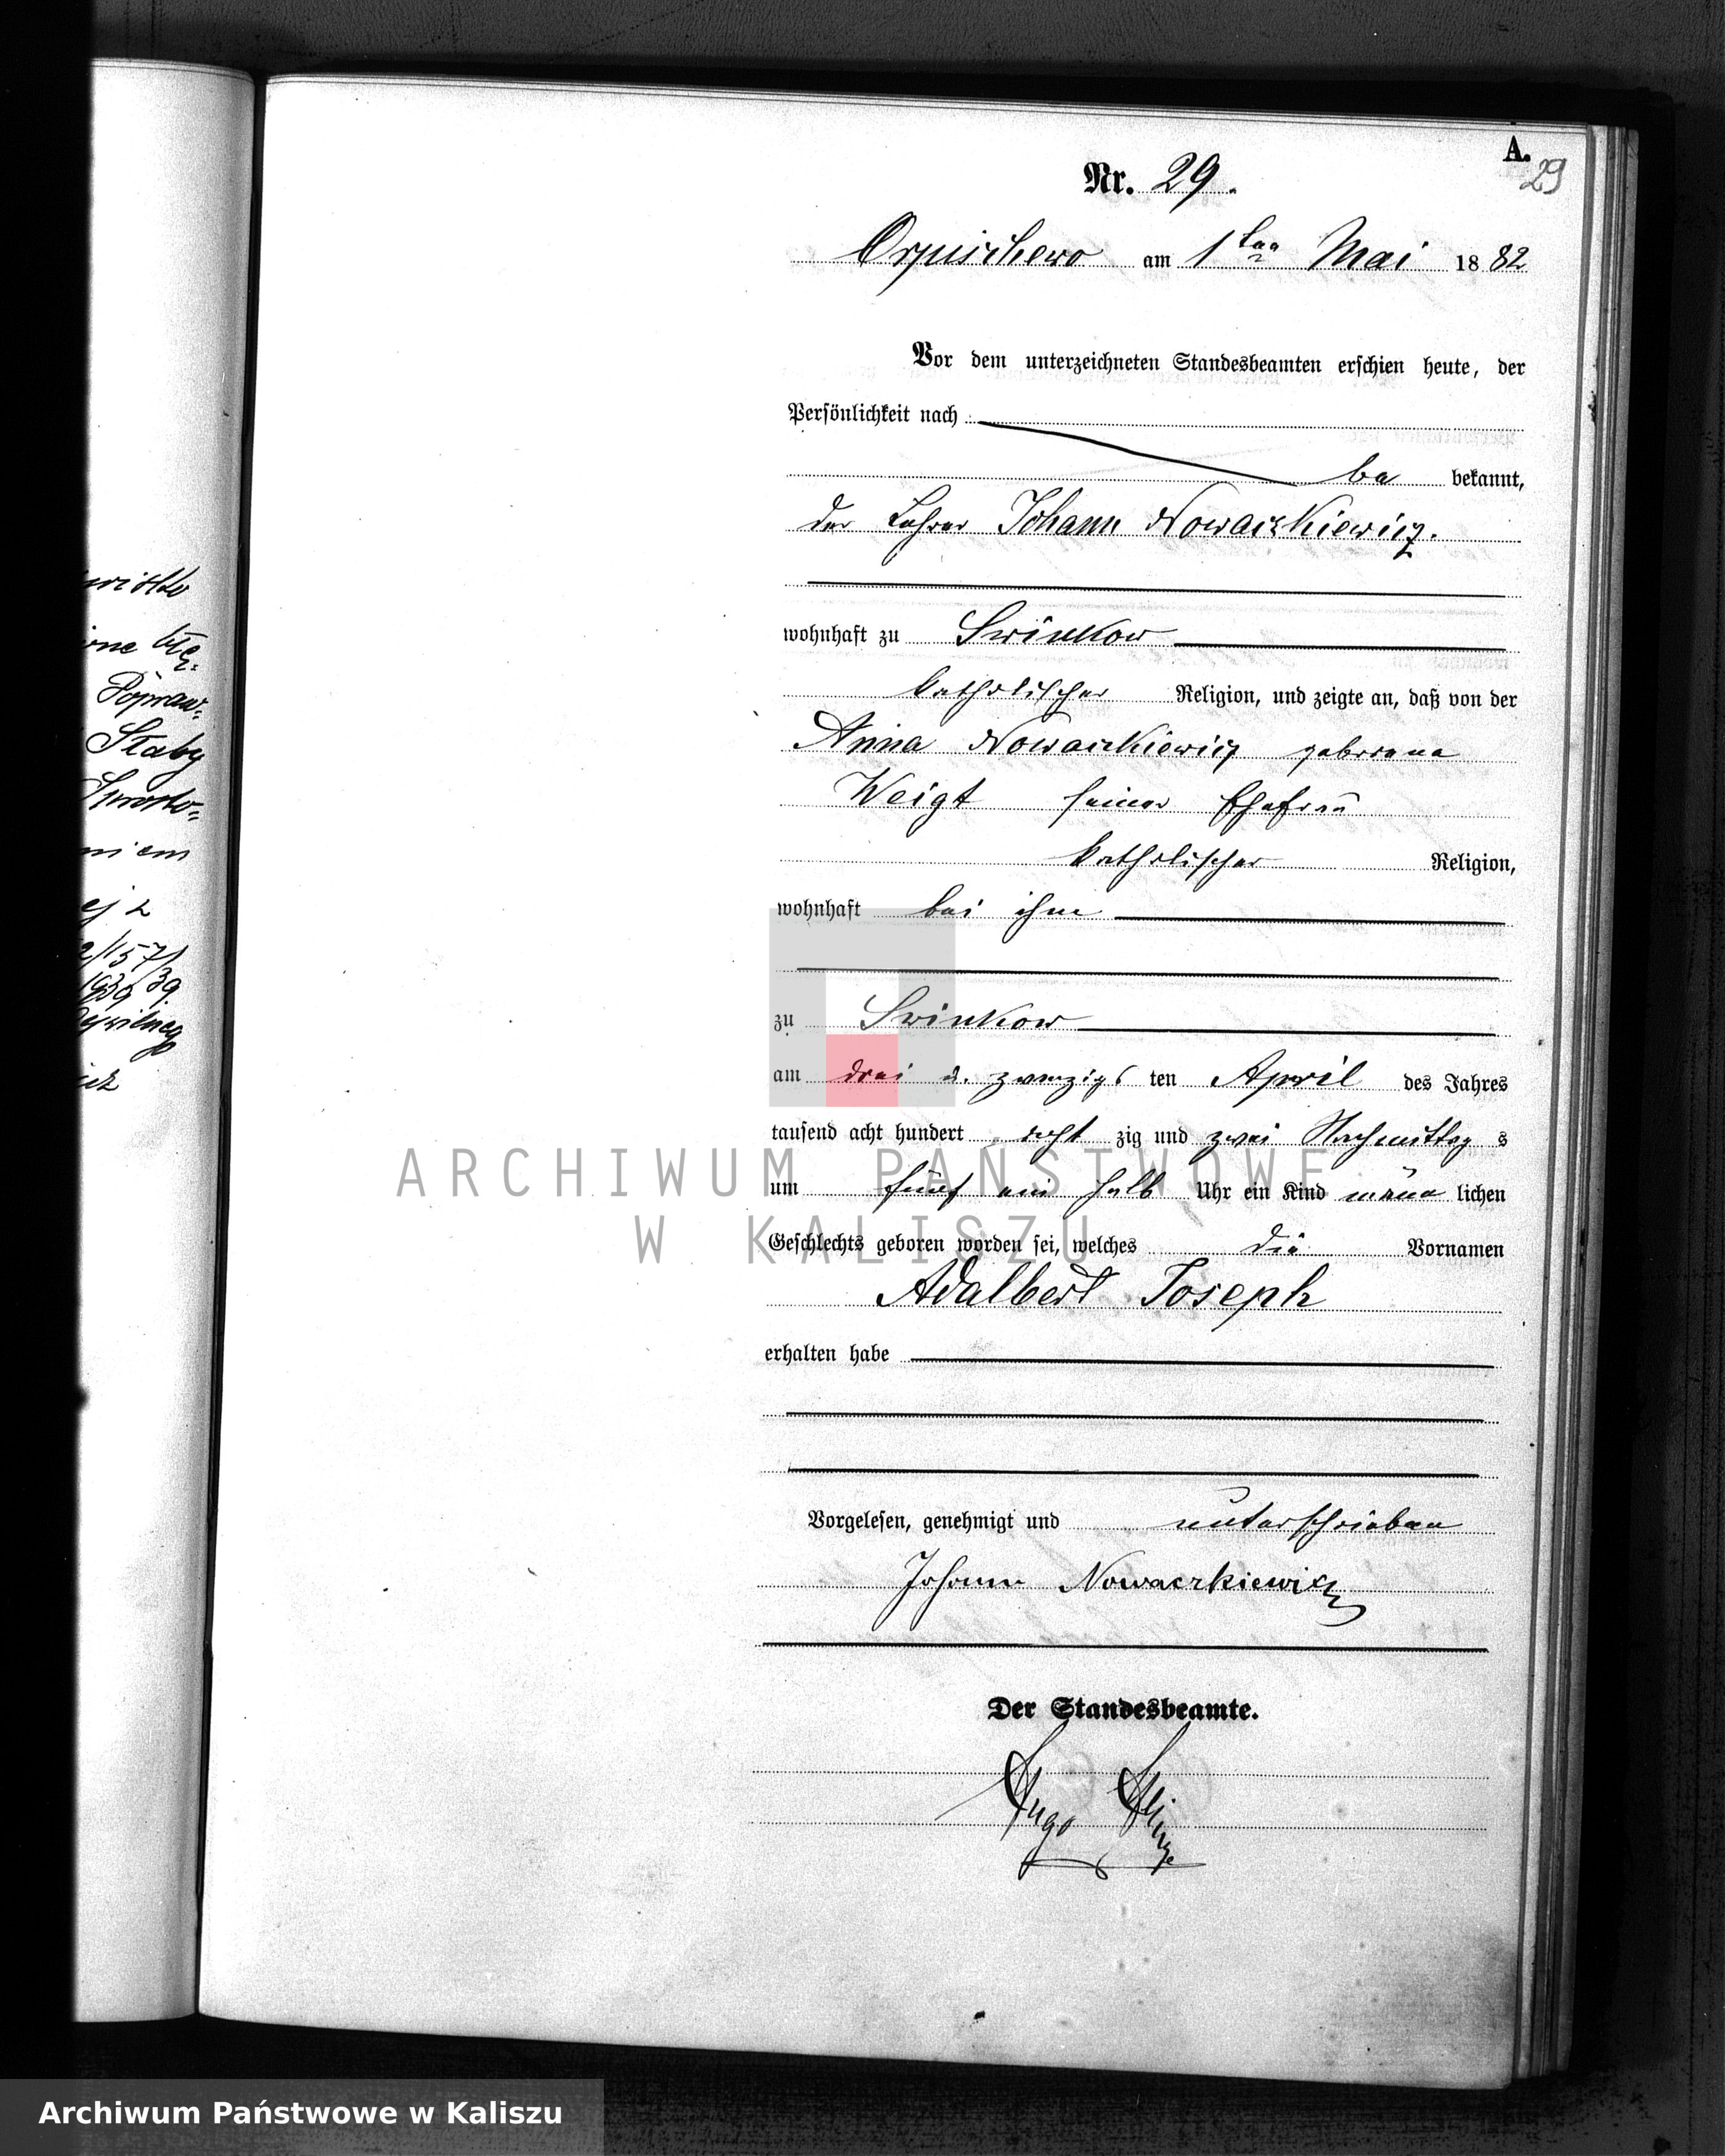 A.
29
Nr. 29.
Orpischewo am 1ten Mai 1882
Vor dem unterzeichneten Standesbeamten erschien heute, der
Persönlichkeit nach
be bekannt,
der Lehrer Johann Nowaczkiewicz.
wohnhaft zu Swinkow
katholischer Religion, und zeigte an, daß von der
Anna Nowaczkiewicz geborene
Weigt seiner Ehefrau
katholischer Religion,
wohnhaft bei ihm
zu Swinkow
am drei u. zwanzigsten April des Jahres
tausend acht hundert acht zig und zwei Nachmittags
um fünf ein halb Uhr ein Kind männlichen
Geschlechts geboren worden sei, welches die Vornamen
Adalbert Joseph
erhalten habe
Vorgelesen, genehmigt und unterschrieben
Johann Nowaczkiewicz
Der Standesbeamte.
Hugo
Staby
niem
ej z
1939
ARCHIWUM PAŃSTWOWE
W KALISZU
Archiwum Państwowe w Kaliszu